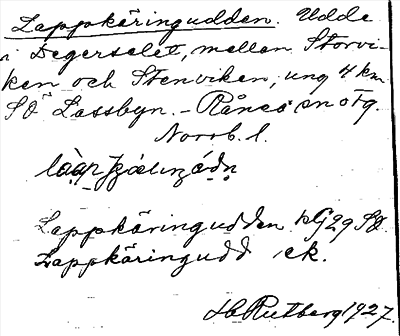 Lappkäringudden. Udde
i Degerselet, mellan Storvi-
ken och Stenviken, ung 4 km
SÖ Lassbyn. - Råneå sn o tg.
Norrb. l.
Lappkäringudden 29 SO
Lappkäringudd ek.
H Rutberg 1927.